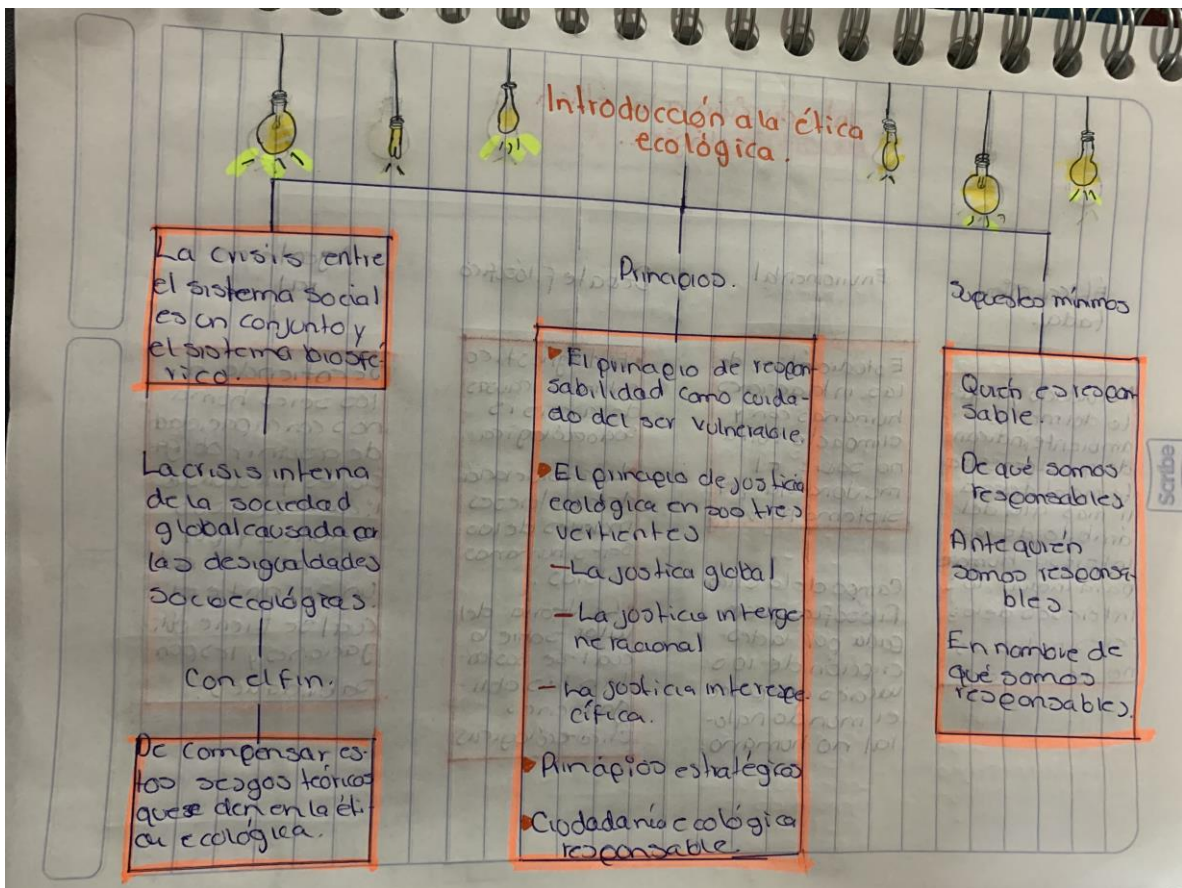 Introducción a la ética
ecológica.
La crisis entre
el sistema social
es un conjunto y
el sistema biosfé-
rico.
La crisis interna
de la sociedad
global causada por
las desigualdades
socoecológicas.
Con el fin.
De compensar es-
tos sesgos teóricos
que se den en la éti-
ca ecológica.
Principios.
El principio de respon-
sabilidad como cuida-
do del ser vulnerable.
El principio de justicia
ecológica en sus tres
vertientes
-La justica global
-La justicia interge
neracional
-La justicia interespe-
cífica.
Principios estratégicos
Ciudadanía ecológica
responsable.
Supuestos mínimos
Quién es respon
sable.
De qué somos
responsables
Ante quién
somos responsa-
bles.
En nombre de
qué somos
responsables.
Scribe